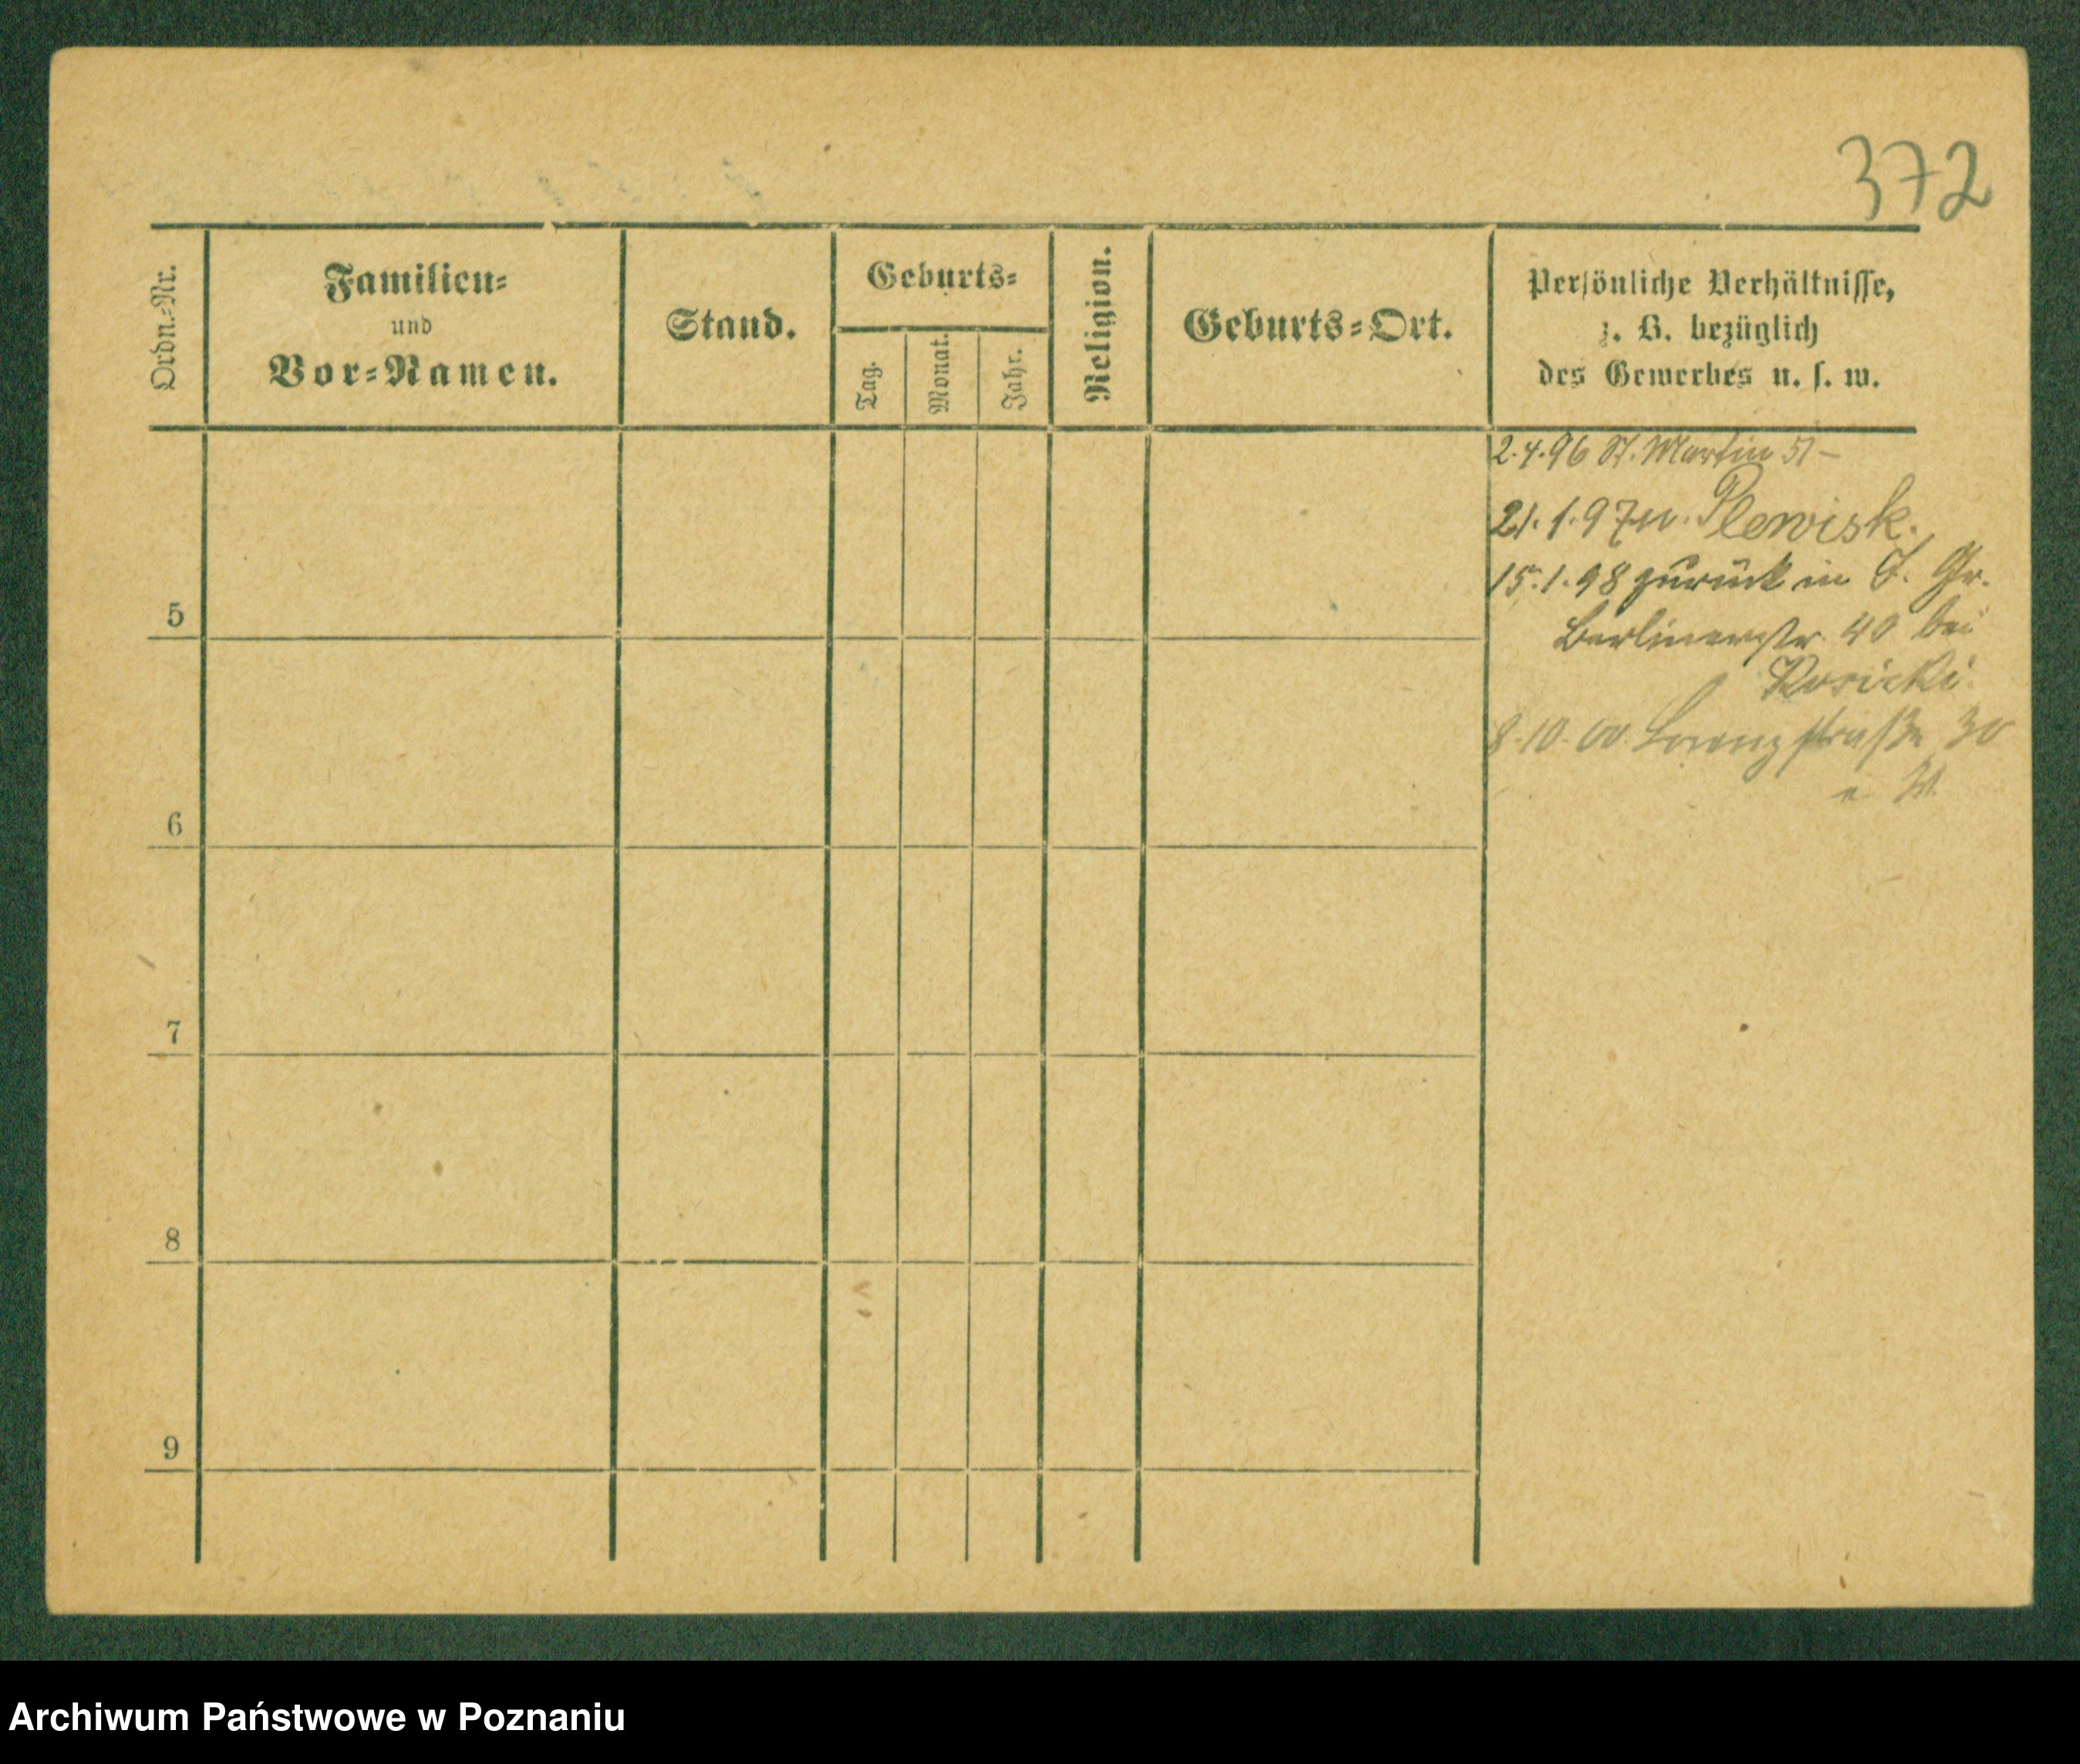 372
Ordn.-Nr.
Familien-
und
Vor-Namen.
Stand.
Geburts-
Tag.
Monat.
Jahr.
Religion.
Geburts-Ort.
Persönliche Verhältnisse,
z. B. bezüglich
des Gewerbes u. s. w.
2.4.96 St. Martin 51 -
21.1.97 n. Plewisk.
15.1.98 zurück in J. Gr.
Berlinerstr. 40 bei
Rosicki
8.10.00. straße 30
5
6
7
8
9
Archiwum Państwowe w Poznaniu